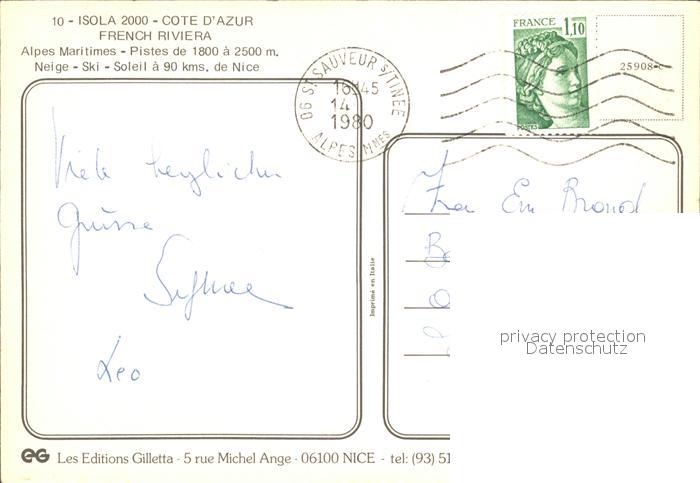 10 - ISOLA 2000 - COTE D'AZUR
FRENCH RIVIERA
Alpes Maritimes - Pistes de 1800 à 2500 m.
Neige - Ski - Soleil à 90 kms. de Nice
06 ST SAUVEUR S/TINEE
16H45
14
1980
ALPES MMES
FRANCE 1,10
POSTES
25908-c
Viele herzliche
Grüsse
Leo
Imprimé en Italie
Frau Em Brand
privacy protection
Datenschutz
EG Les Editions Gilletta - 5 rue Michel Ange - 06100 NICE - tel: (93) 51